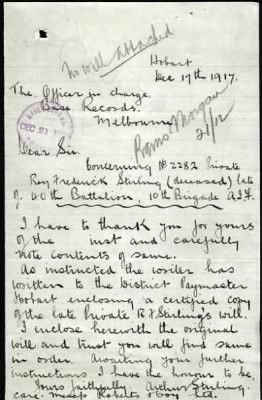 No will attached
Hobart
Dec 17th 1917.
The Officer in charge.
Base Records.
Melbourne
DEC 21
21/12
Dear Sir.
Concerning No 2282 Private
Roy Frederick Stirling (deceased) late
of 40th Battalion, 10th Brigade A.I.F.
I have to thank you for yours
of the inst and carefully
note contents of same.
As instructed the writer has
written to the District Paymaster
Hobart enclosing a certified copy
of the late Private R F Stirling's will.
I enclose herewith the original
will and trust you will find same
in order. Awaiting your further
instructions I have the honour to be,
Yours faithfully Arthur Stirling.
care. Messrs Roberts & Coy Ltd.